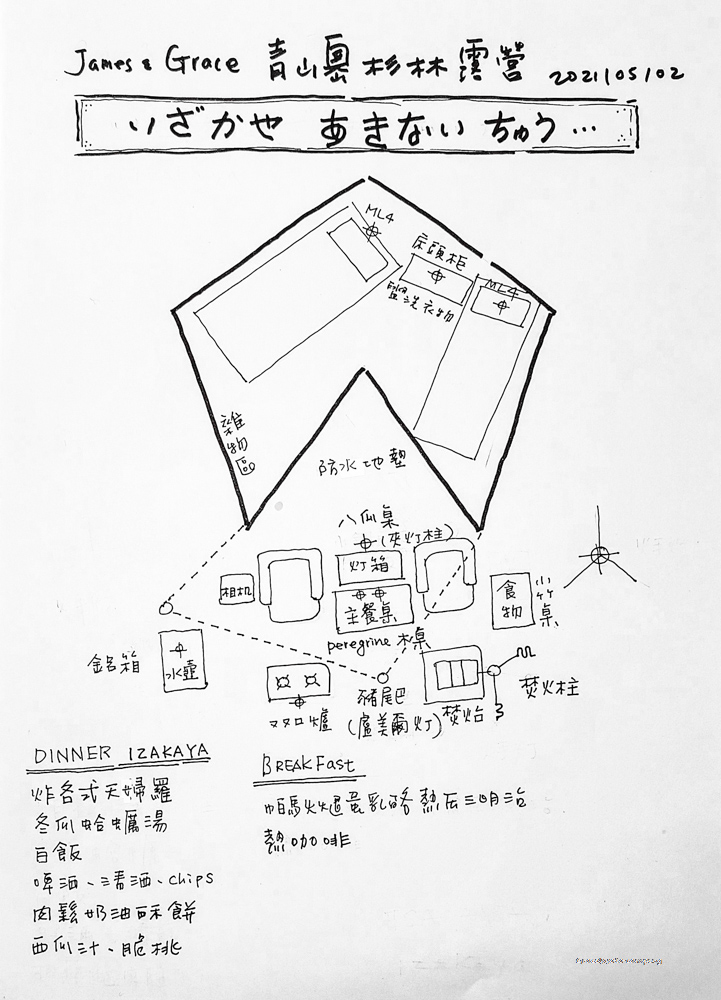 James & Grace 青山嶴杉林露營 2021/05/02
いざかや あきないちゅう…
ML4
床頭柜
ML4
盥洗衣物
雜物區
防水地墊
八爪桌
(夾灯柱)
相机
灯箱
主餐桌
食物
小竹桌
peregrine 木桌
鋁箱
水壺
豬尾巴
(盧美爾灯)
焚火台
焚火柱
ヌヌ口爐
DINNER IZAKAYA
炸各式天婦羅
冬瓜蛤蠣湯
白飯
啤酒、清酒、chips
肉鬆奶油酥餅
西瓜汁、脆桃
BREAKFast
帕馬火腿蛋乳酪熱压三明治
熱咖啡